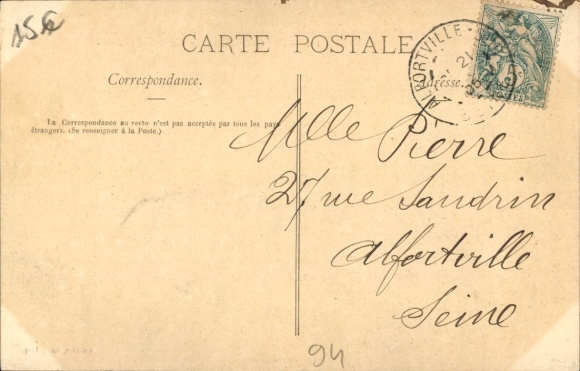 15€
CARTE POSTALE
Correspondance.
Adresse.
ALFORTVILLE
La Correspondance au verso n'est pas acceptée par tous les pays
étrangers. (Se renseigner à la Poste.)
Mlle Pierre
27 rue Sandrin
Alfortville
Seine
94